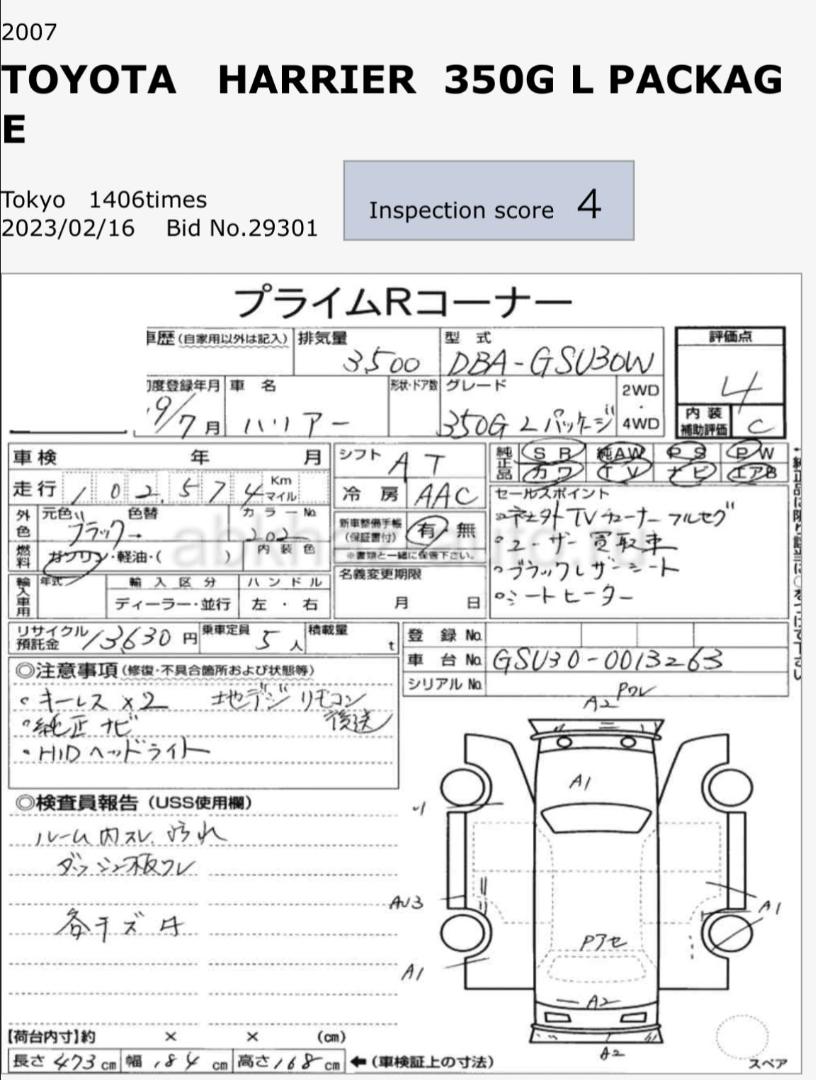 2007
TOYOTA HARRIER 350G L PACKAG
E
Tokyo 1406times
2023/02/16 Bid No.29301
Inspection score 4
プライムRコーナー
車歴(自家用以外は記入) 排気量 型式 評価点
3500 DBA-GSU30W 4
初度登録年月 車名 形状・ドア数 グレード 2WD・4WD
19/7月 ハリアー 350G Lパッケージ
内装補助評価 C
車検 年 月 シフト AT 純正品 SR 純AW PS PW
カワ TV ナビ エアB
走行 102,574 Km マイル 冷房 AAC
セールスポイント
外色 元色 色替 カラーNo.
ブラック→ 202
新車整備手帳(保証書付) 有・無
※書類と一緒に保管下さい。
・ネ土外TVチューナーフルセグ
・ユーザー買取車
・ブラックレザーシート
・シートヒーター
燃料 ガソリン・軽油・( ) 内装色
輸入車用 年式 輸入区分 ハンドル
ディーラー・並行 左・右
名義変更期限
月 日
リサイクル預託金 13630円 乗車定員 5人 積載量 t
登録No.
車台No. GSU30-0013263
シリアルNo.
◎注意事項(修復・不具合箇所および状態等)
・キーレス×2 地デジリモコン
後送
・純正ナビ
・HIDヘッドライト
◎検査員報告(USS使用欄)
ルーム内スレ、汚れ
ダッシュ板ワレ
各キズ
A2
A1
AU3
A1
A1
A2
A2
【荷台内寸】約 × × (cm)
長さ473cm 幅184cm 高さ168cm ←(車検証上の寸法)
スペア